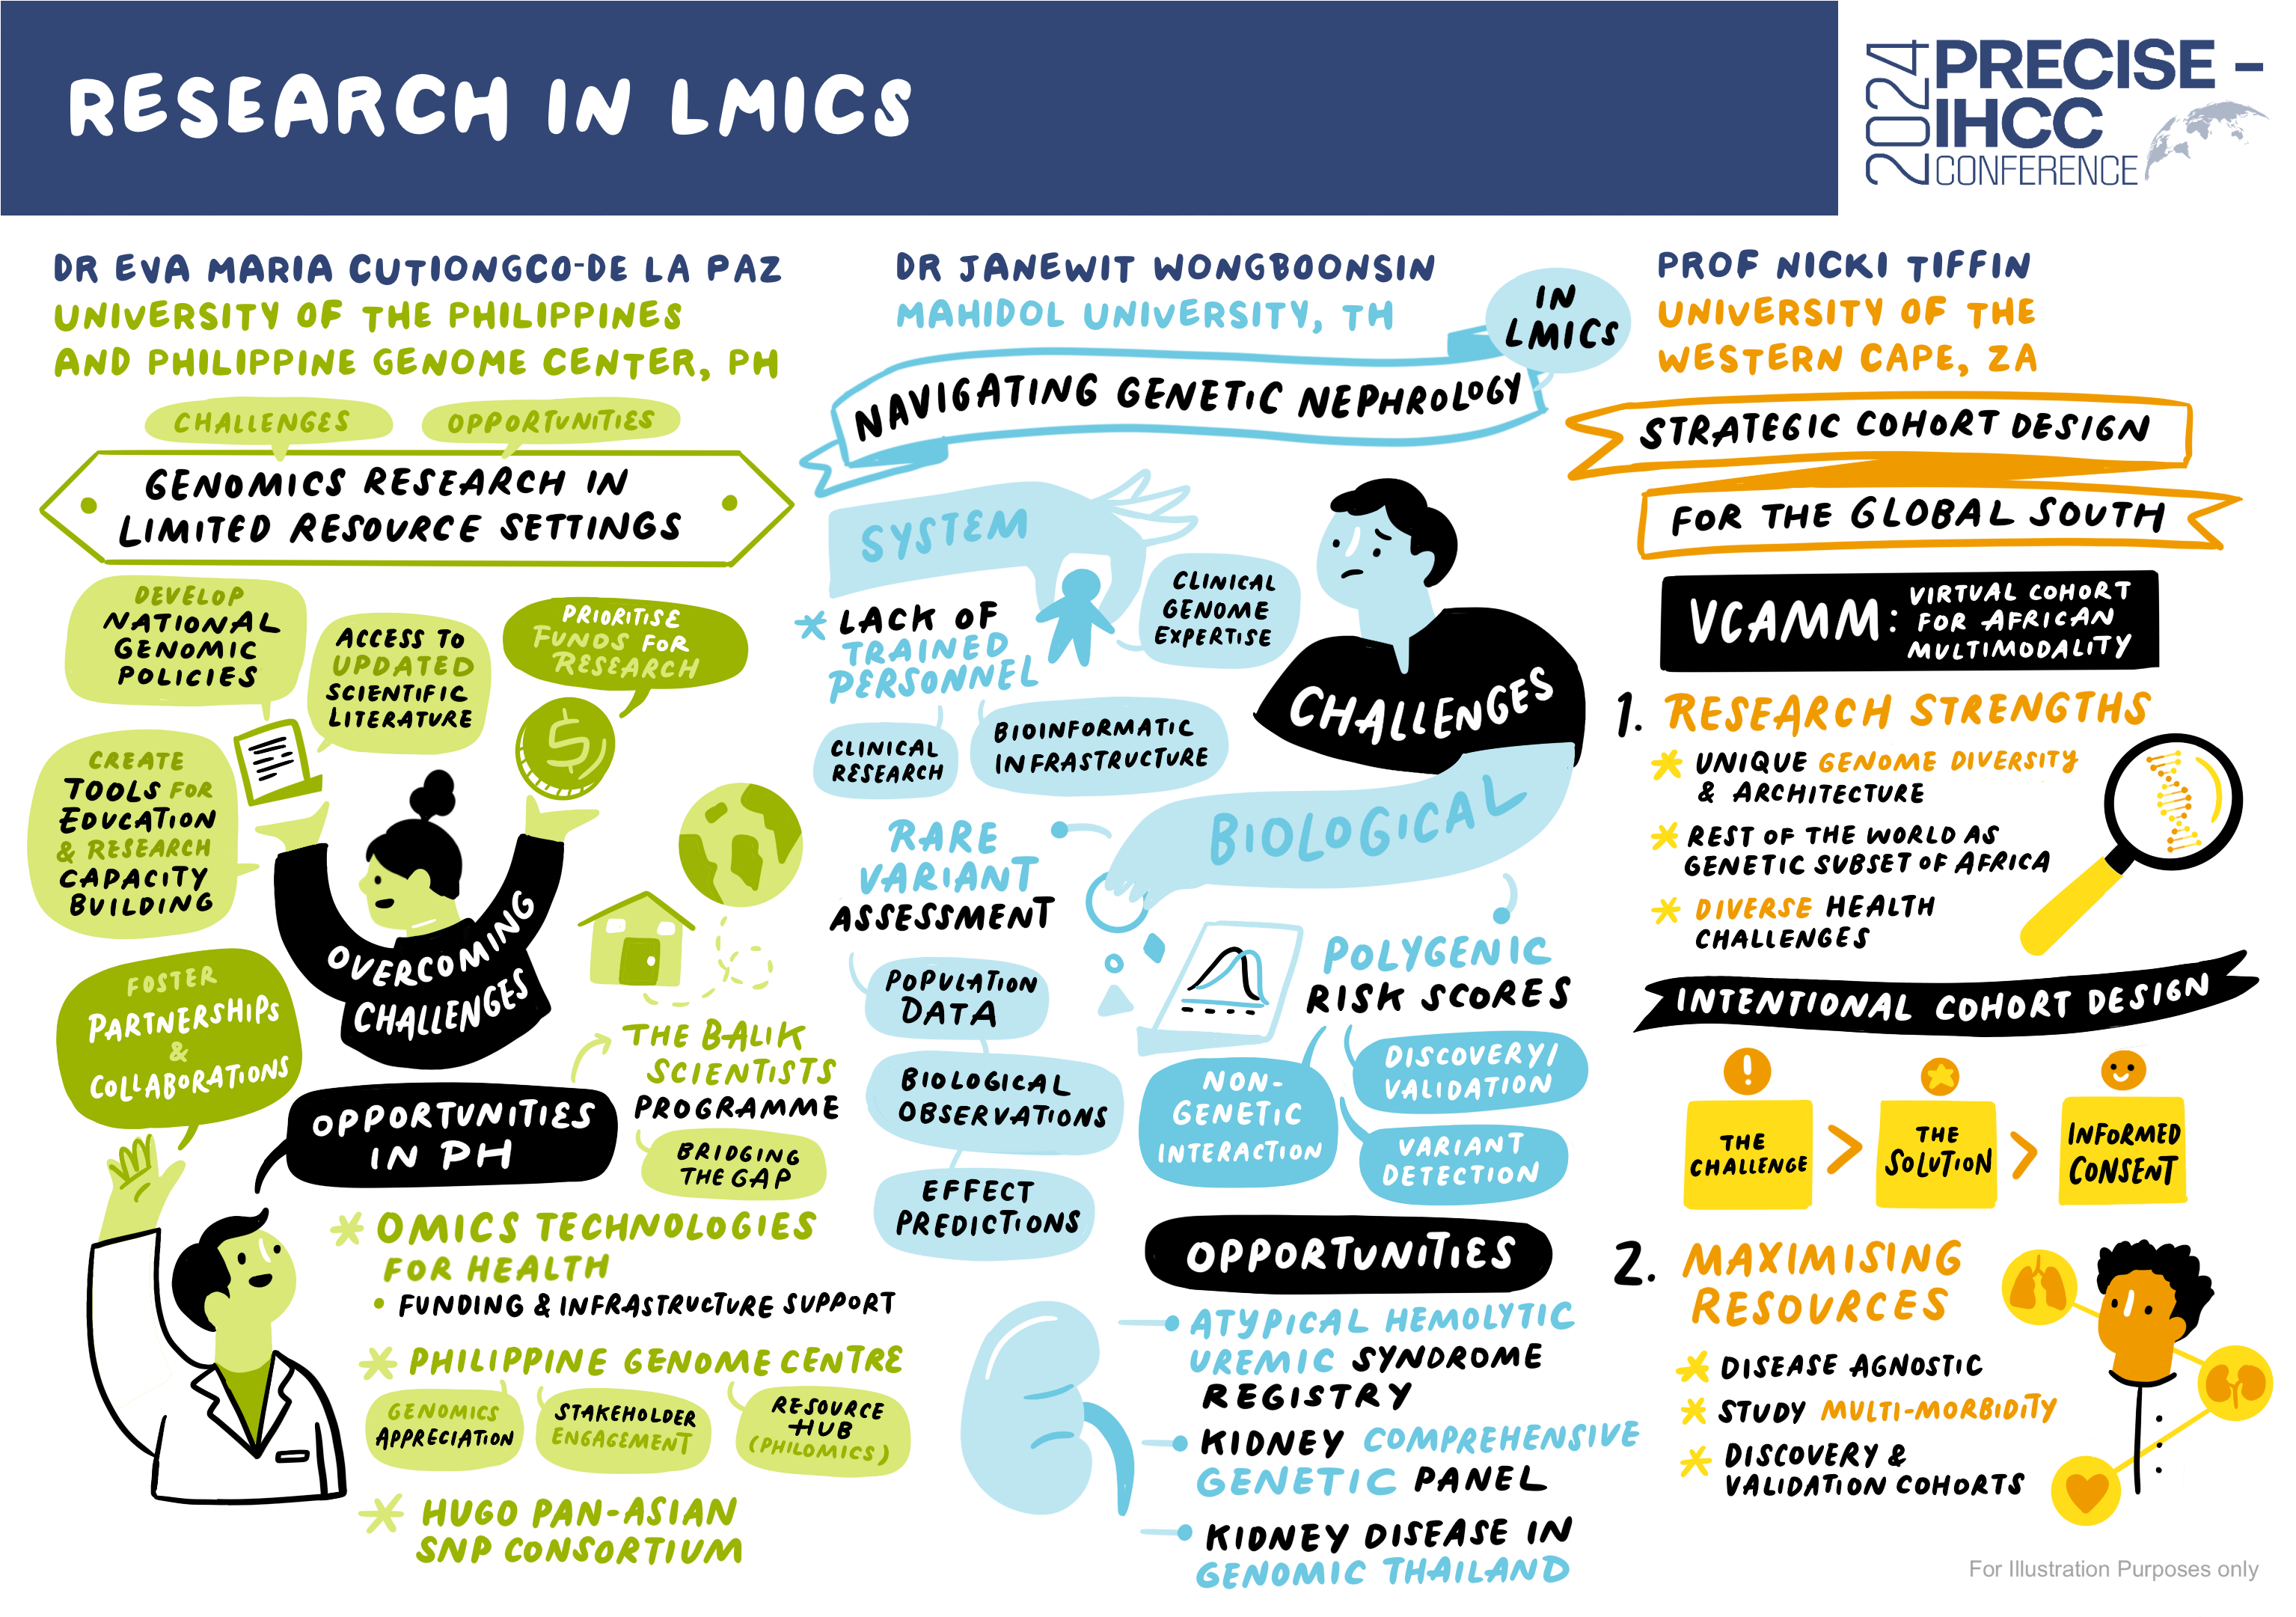 RESEARCH IN LMICS
2024 PRECISE -
IHCC
CONFERENCE
DR EVA MARIA CUTIONGCO-DE LA PAZ
UNIVERSITY OF THE PHILIPPINES
AND PHILIPPINE GENOME CENTER, PH
CHALLENGES
OPPORTUNITIES
GENOMICS RESEARCH IN
LIMITED RESOURCE SETTINGS
DEVELOP
NATIONAL
GENOMIC
POLICIES
ACCESS TO
UPDATED
SCIENTIFIC
LITERATURE
PRIORITISE
FUNDS FOR
RESEARCH
$
CREATE
TOOLS FOR
EDUCATION
& RESEARCH
CAPACITY
BUILDING
OVERCOMING
CHALLENGES
FOSTER
PARTNERSHIPS
&
COLLABORATIONS
OPPORTUNITIES
IN PH
THE BALIK
SCIENTISTS
PROGRAMME
BRIDGING
THE GAP
* OMICS TECHNOLOGIES
FOR HEALTH
• FUNDING & INFRASTRUCTURE SUPPORT
* PHILIPPINE GENOME CENTRE
GENOMICS
APPRECIATION
STAKEHOLDER
ENGAGEMENT
RESOURCE
HUB
(PHILOMICS)
* HUGO PAN-ASIAN
SNP CONSORTIUM
DR JANEWIT WONGBOONSIN
MAHIDOL UNIVERSITY, TH
NAVIGATING GENETIC NEPHROLOGY
IN
LMICS
SYSTEM
* LACK OF
TRAINED
PERSONNEL
CLINICAL
GENOME
EXPERTISE
CLINICAL
RESEARCH
BIOINFORMATIC
INFRASTRUCTURE
CHALLENGES
BIOLOGICAL
RARE
VARIANT
ASSESSMENT
POPULATION
DATA
BIOLOGICAL
OBSERVATIONS
EFFECT
PREDICTIONS
POLYGENIC
RISK SCORES
NON-
GENETIC
INTERACTION
DISCOVERY/
VALIDATION
VARIANT
DETECTION
OPPORTUNITIES
ATYPICAL HEMOLYTIC
UREMIC SYNDROME
REGISTRY
KIDNEY COMPREHENSIVE
GENETIC PANEL
KIDNEY DISEASE IN
GENOMIC THAILAND
PROF NICKI TIFFIN
UNIVERSITY OF THE
WESTERN CAPE, ZA
STRATEGIC COHORT DESIGN
FOR THE GLOBAL SOUTH
VCAMM: VIRTUAL COHORT
FOR AFRICAN
MULTIMODALITY
1. RESEARCH STRENGTHS
* UNIQUE GENOME DIVERSITY
& ARCHITECTURE
* REST OF THE WORLD AS
GENETIC SUBSET OF AFRICA
* DIVERSE HEALTH
CHALLENGES
INTENTIONAL COHORT DESIGN
!
THE
CHALLENGE
>
THE
SOLUTION
>
INFORMED
CONSENT
2. MAXIMISING
RESOURCES
* DISEASE AGNOSTIC
* STUDY MULTI-MORBIDITY
* DISCOVERY &
VALIDATION COHORTS
For Illustration Purposes only